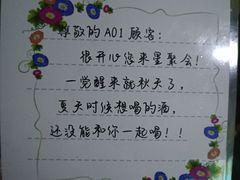 尊敬的A01顾客:
很开心您来星聚会!
一觉醒来就秋天了,
夏天时候想喝的酒,
还没能和你一起喝!!